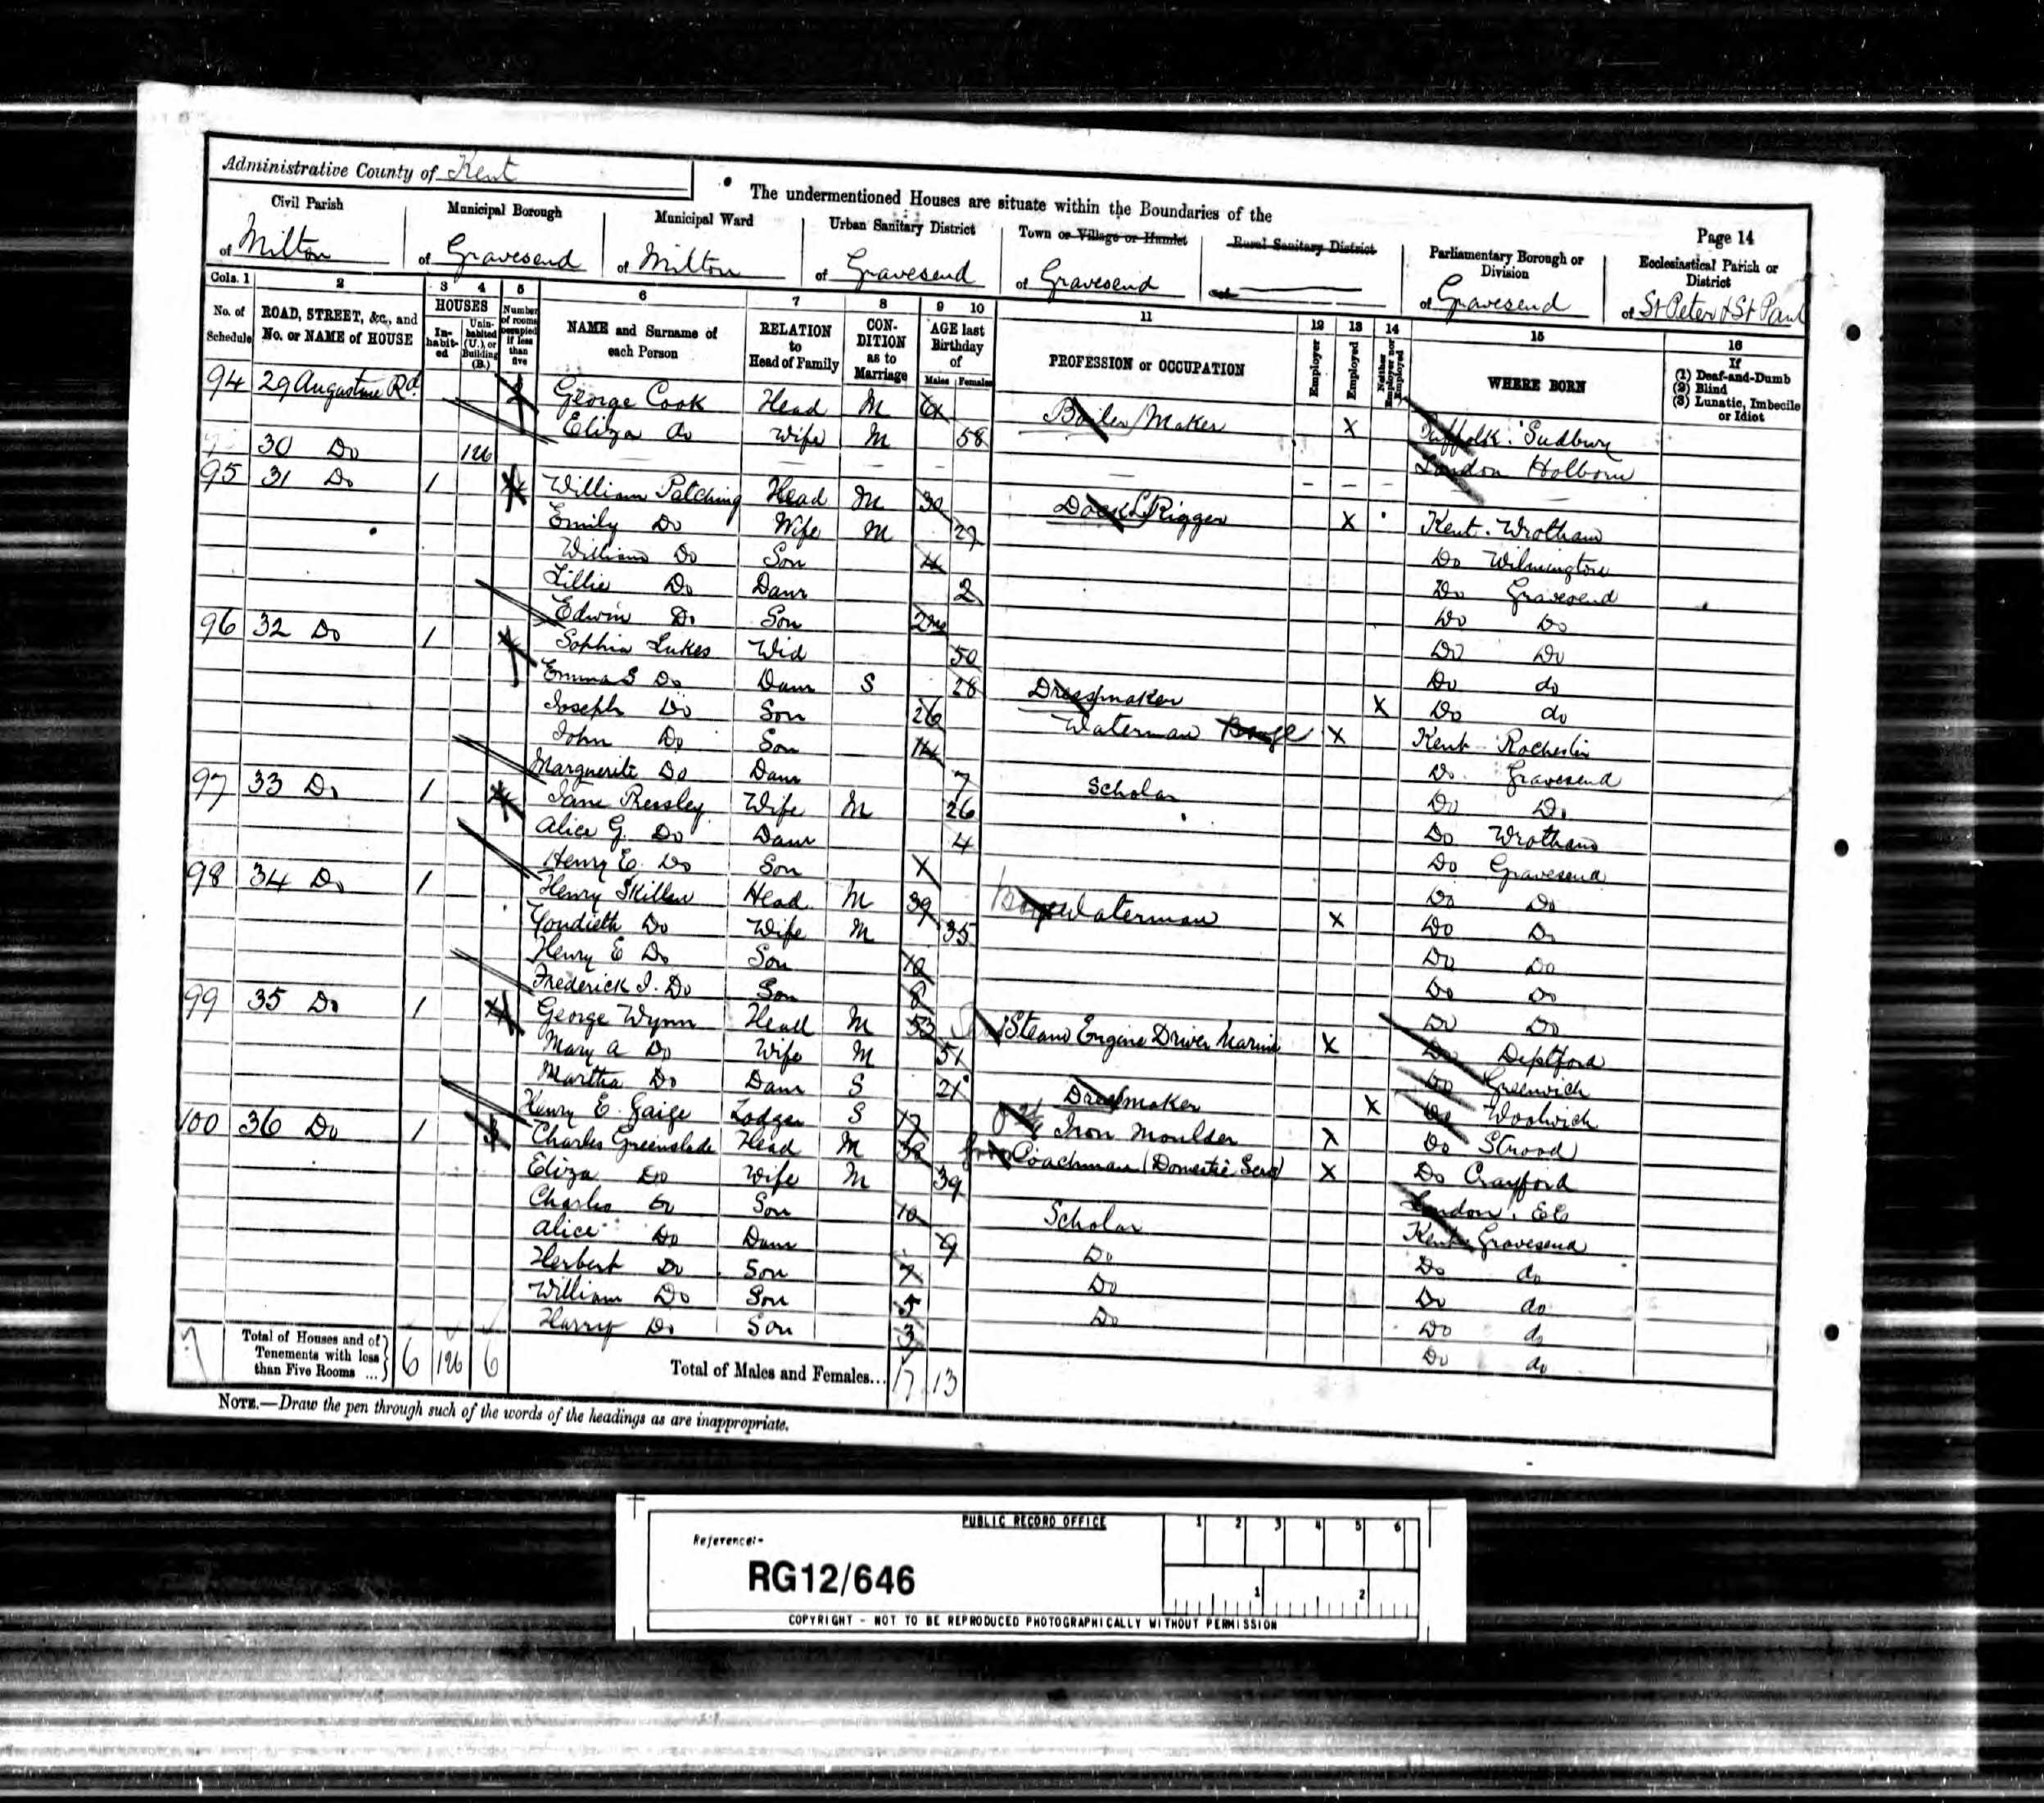 Administrative County of Kent
The undermentioned Houses are situate within the Boundaries of the
Page 14
Civil Parish of Milton
Municipal Borough of Gravesend
Municipal Ward of Milton
Urban Sanitary District of Gravesend
Town or Village or Hamlet of Gravesend
Rural Sanitary District of
Parliamentary Borough or Division of Gravesend
Ecclesiastical Parish or District of St Peter & St Paul
Cols. 1 2 3 4 5 6 7 8 9 10 11 12 13 14 15 16
No. of Schedule
ROAD, STREET, &c., and No. or NAME of HOUSE
HOUSES
Inhabited
Uninhabited (U.), or Building (B.)
Number of rooms occupied if less than five
NAME and Surname of each Person
RELATION to Head of Family
CONDITION as to Marriage
AGE last Birthday of
Males Females
PROFESSION or OCCUPATION
Employer
Employed
Neither Employer nor Employed
WHERE BORN
If
(1) Deaf-and-Dumb
(2) Blind
(3) Lunatic, Imbecile or Idiot
94 29 Augustine Rd. George Cook Head M Boiler Maker X Suffolk. Sudbury
Eliza do Wife M 58 London Holborn
30 Do 1U
95 31 Do 1 4 William Patching Head M 30 Dock Rigger X Kent. Wrotham
Emily Do Wife M 27 Do Wilmington
William Do Son 4 Do Gravesend
Lillie Do Daur 2 Do Do
Edwin Do Son 2mo Do Do
96 32 Do 1 4 Sophia Lukes Wid 50 Do do
Emma S Do Daur S 28 Dressmaker X Do do
Joseph Do Son 26 Waterman Barge X Kent Rochester
John Do Son 14 Do Gravesend
Marguerite Do Daur 7 Scholar Do Do
97 33 Do 1 4 Jane Pressley Wife M 26 Do Wrotham
Alice G. Do Daur 4 Do Gravesend
Henry E. Do Son Do Do
98 34 Do 1 Henry Skillen Head M 39 Barge Waterman X Do Do
Do Wife M 35 Do Do
Henry E Do Son 10 Do Do
Frederick J. Do Son 8 Do Do
99 35 Do 1 4 George Wynn Head M 53 Steam Engine Driver Marine X Do Deptford
Mary A Do Wife M 51 Do Greenwich
Martha Do Daur S 21 Dressmaker X Do Woolwich
Henry E. Gaige Lodger S 17 Iron Moulder X Do Strood
100 36 Do 1 3 Charles Greenslade Head M 38 Coachman (Domestic Serv) X Do Crayford
Eliza Do Wife M 39 London. EC
Charles Do Son 10 Scholar Kent Gravesend
Alice Do Daur 9 Do Do do
Herbert Do Son 7 Do Do do
William Do Son 5 Do Do do
Harry Do Son 3 Do do
7 Total of Houses and of Tenements with less than Five Rooms ... 6 1U 6 Total of Males and Females... 17 13
NOTE.—Draw the pen through such of the words of the headings as are inappropriate.
PUBLIC RECORD OFFICE
1 2 3 4 5 6
Reference:-
RG12/646
1 2
COPYRIGHT - NOT TO BE REPRODUCED PHOTOGRAPHICALLY WITHOUT PERMISSION